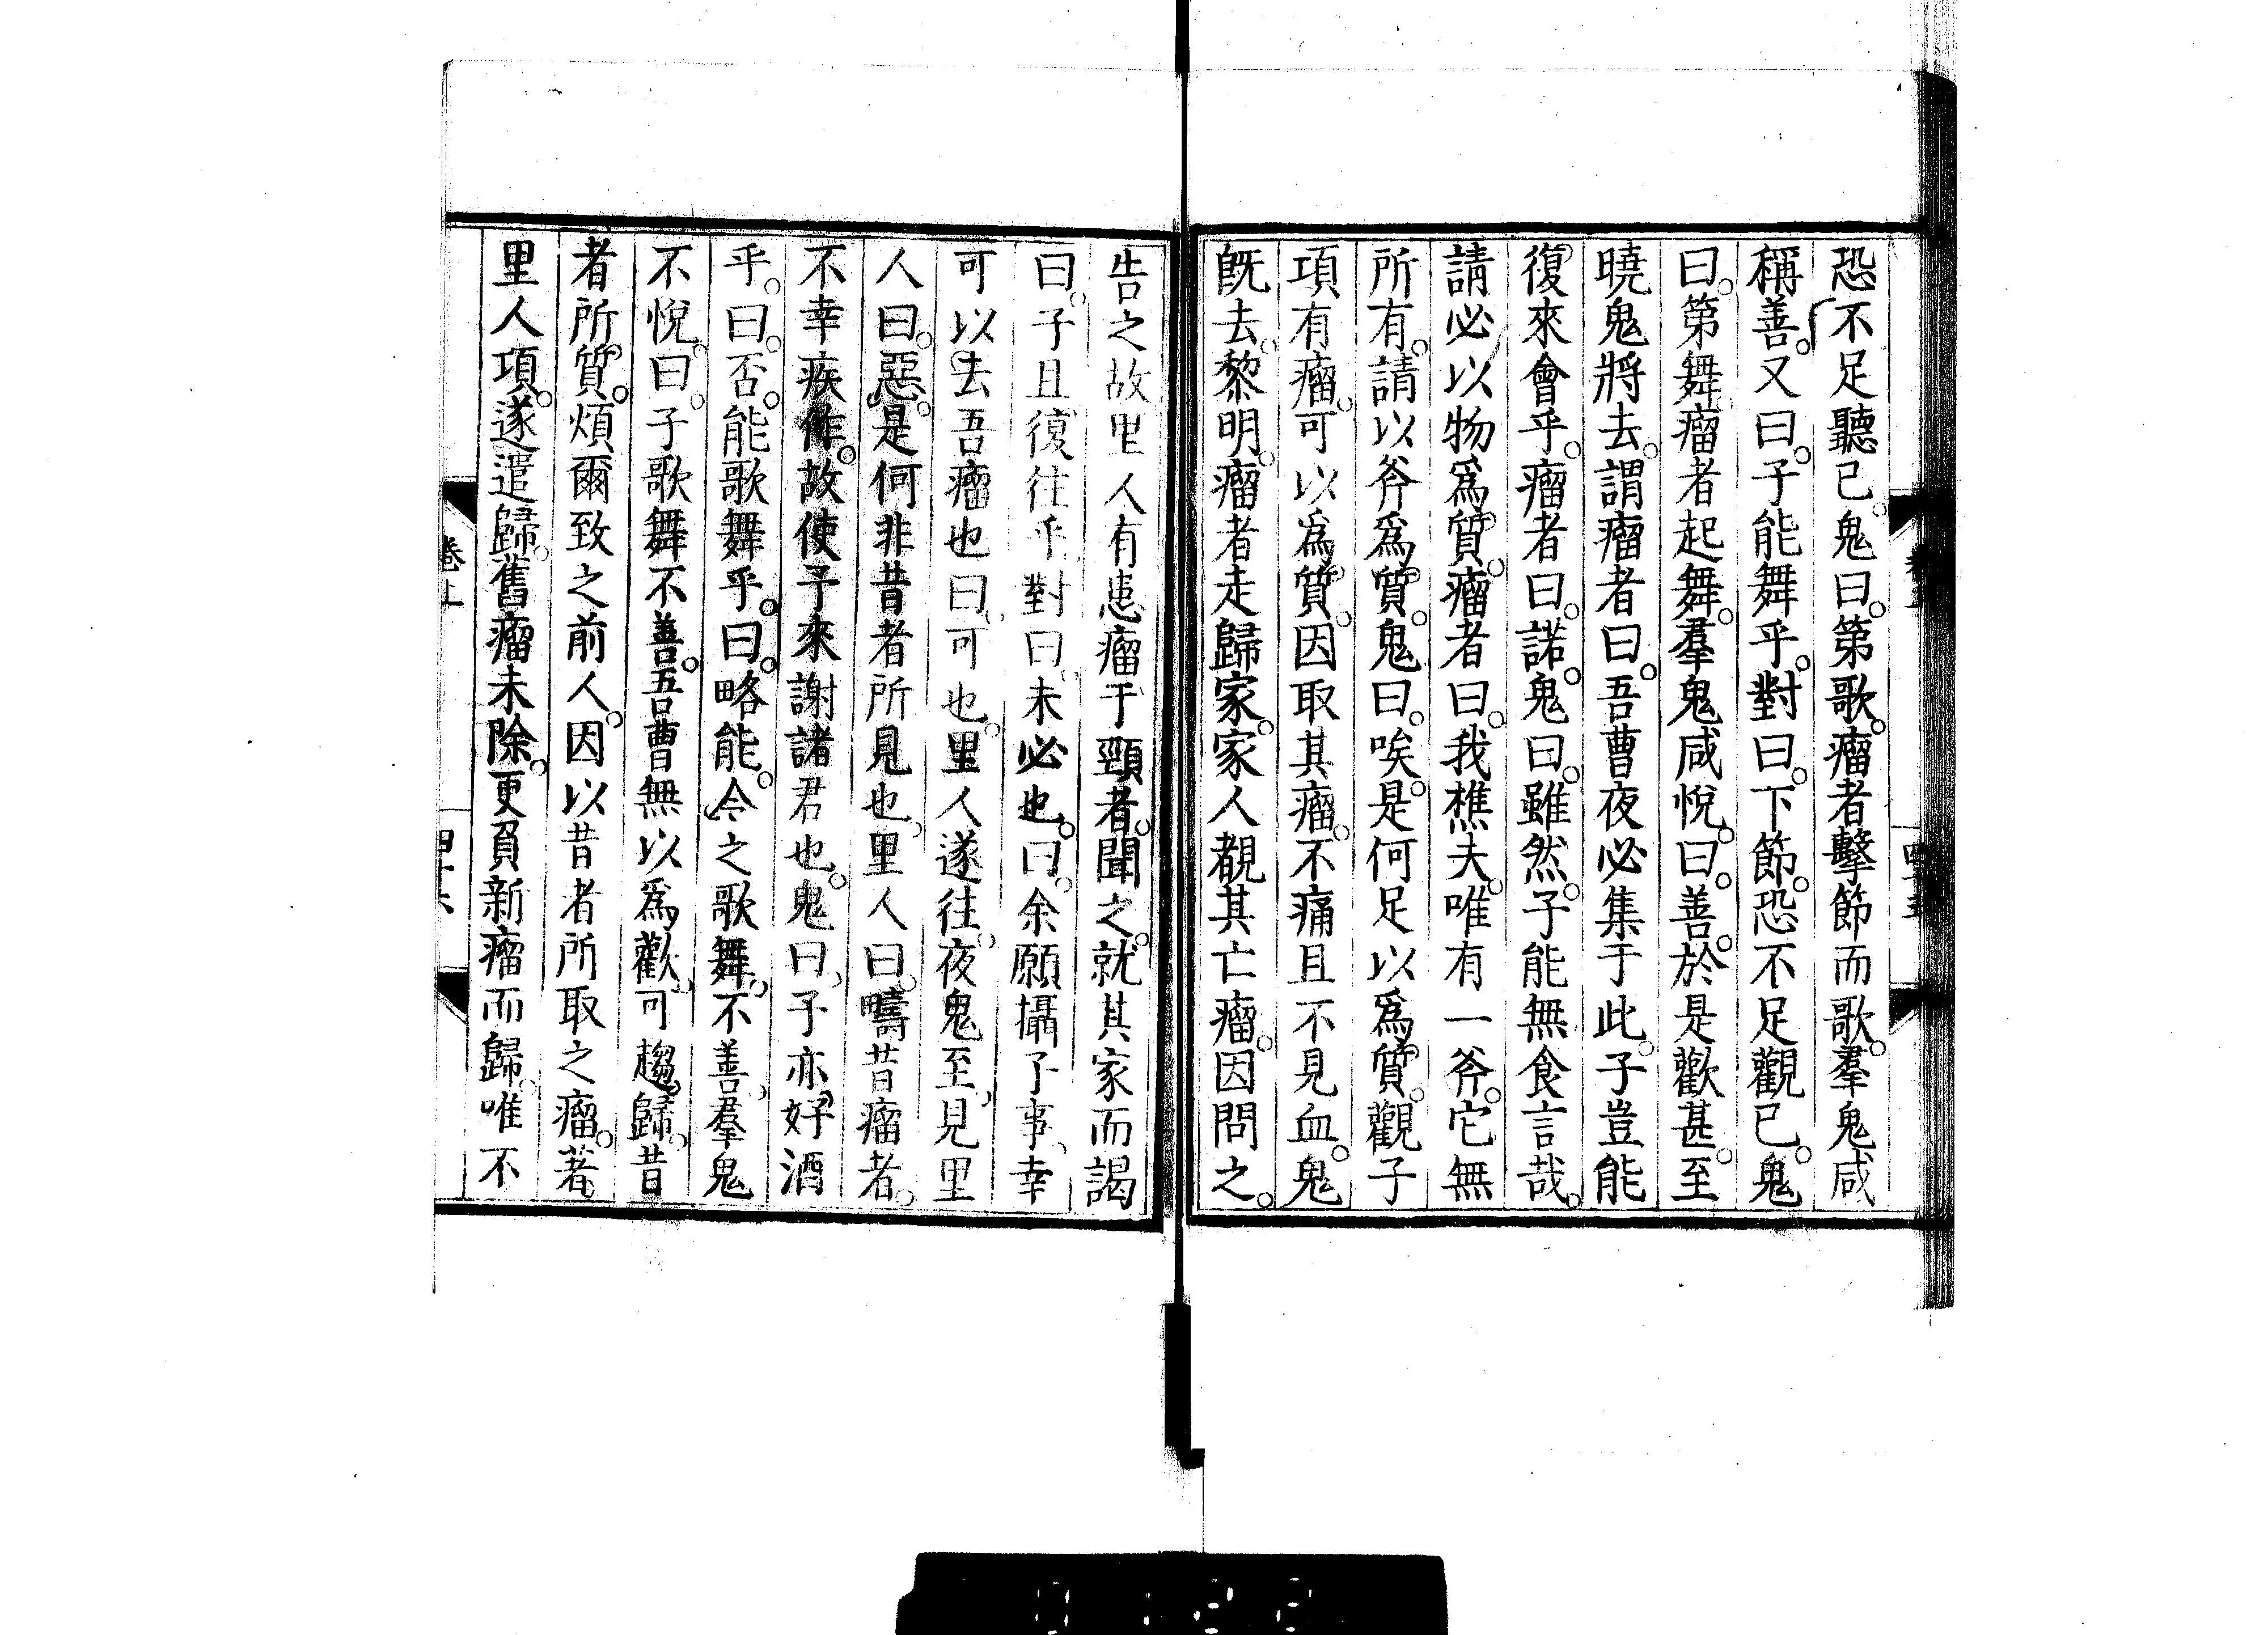 恐不足聽已。鬼曰。第歌。瘤者擊節而歌。羣鬼咸
稱善。又曰。子能舞乎。對曰。下節。恐不足觀已。鬼
曰。第舞。瘤者起舞。羣鬼咸悅。曰。善。於是歡甚。至
曉鬼將去。謂瘤者曰。吾曹夜必集于此。子豈能
復來會乎。瘤者曰。諾。鬼曰。雖然。子能無食言哉。
請必以物爲質。瘤者曰。我樵夫。唯有一斧。它無
所有。請以斧爲質。鬼曰。唉。是何足以爲質。觀子
項有瘤。可以爲質。因取其瘤。不痛且不見血。鬼
旣去。黎明。瘤者走歸家。家人覩其亡瘤。因問之。
告之故里人有患瘤于頸者。聞之。就其家而謁
曰。子且復往乎。對曰。未必也。曰。余願攝子事。幸
可以去吾瘤也曰。可也。里人遂往。夜鬼至。見里
人曰。惡。是何非昔者所見也。里人曰。疇昔瘤者。
不幸疾作。故使予來謝諸君也。鬼曰。子亦好酒
乎。曰。否。能歌舞乎。曰。略能。令之歌舞。不善。羣鬼
不悅。曰。子歌舞不善。吾曹無以爲歡。可趨歸。昔
者所質。煩爾致之前人。因以昔者所取之瘤。著
里人項。遂遣歸。舊瘤未除。更負新瘤而歸。唯不
卷上